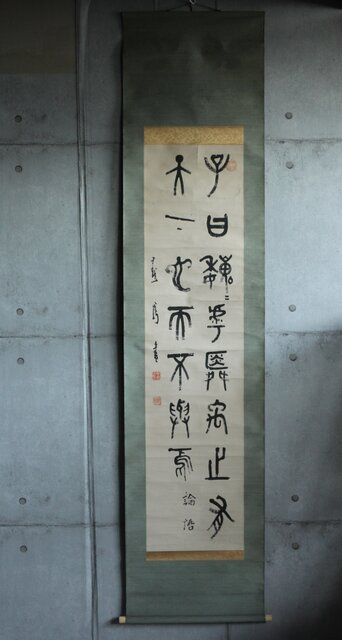 子曰巍〻乎舜禹之有
天下也而不與焉
論語